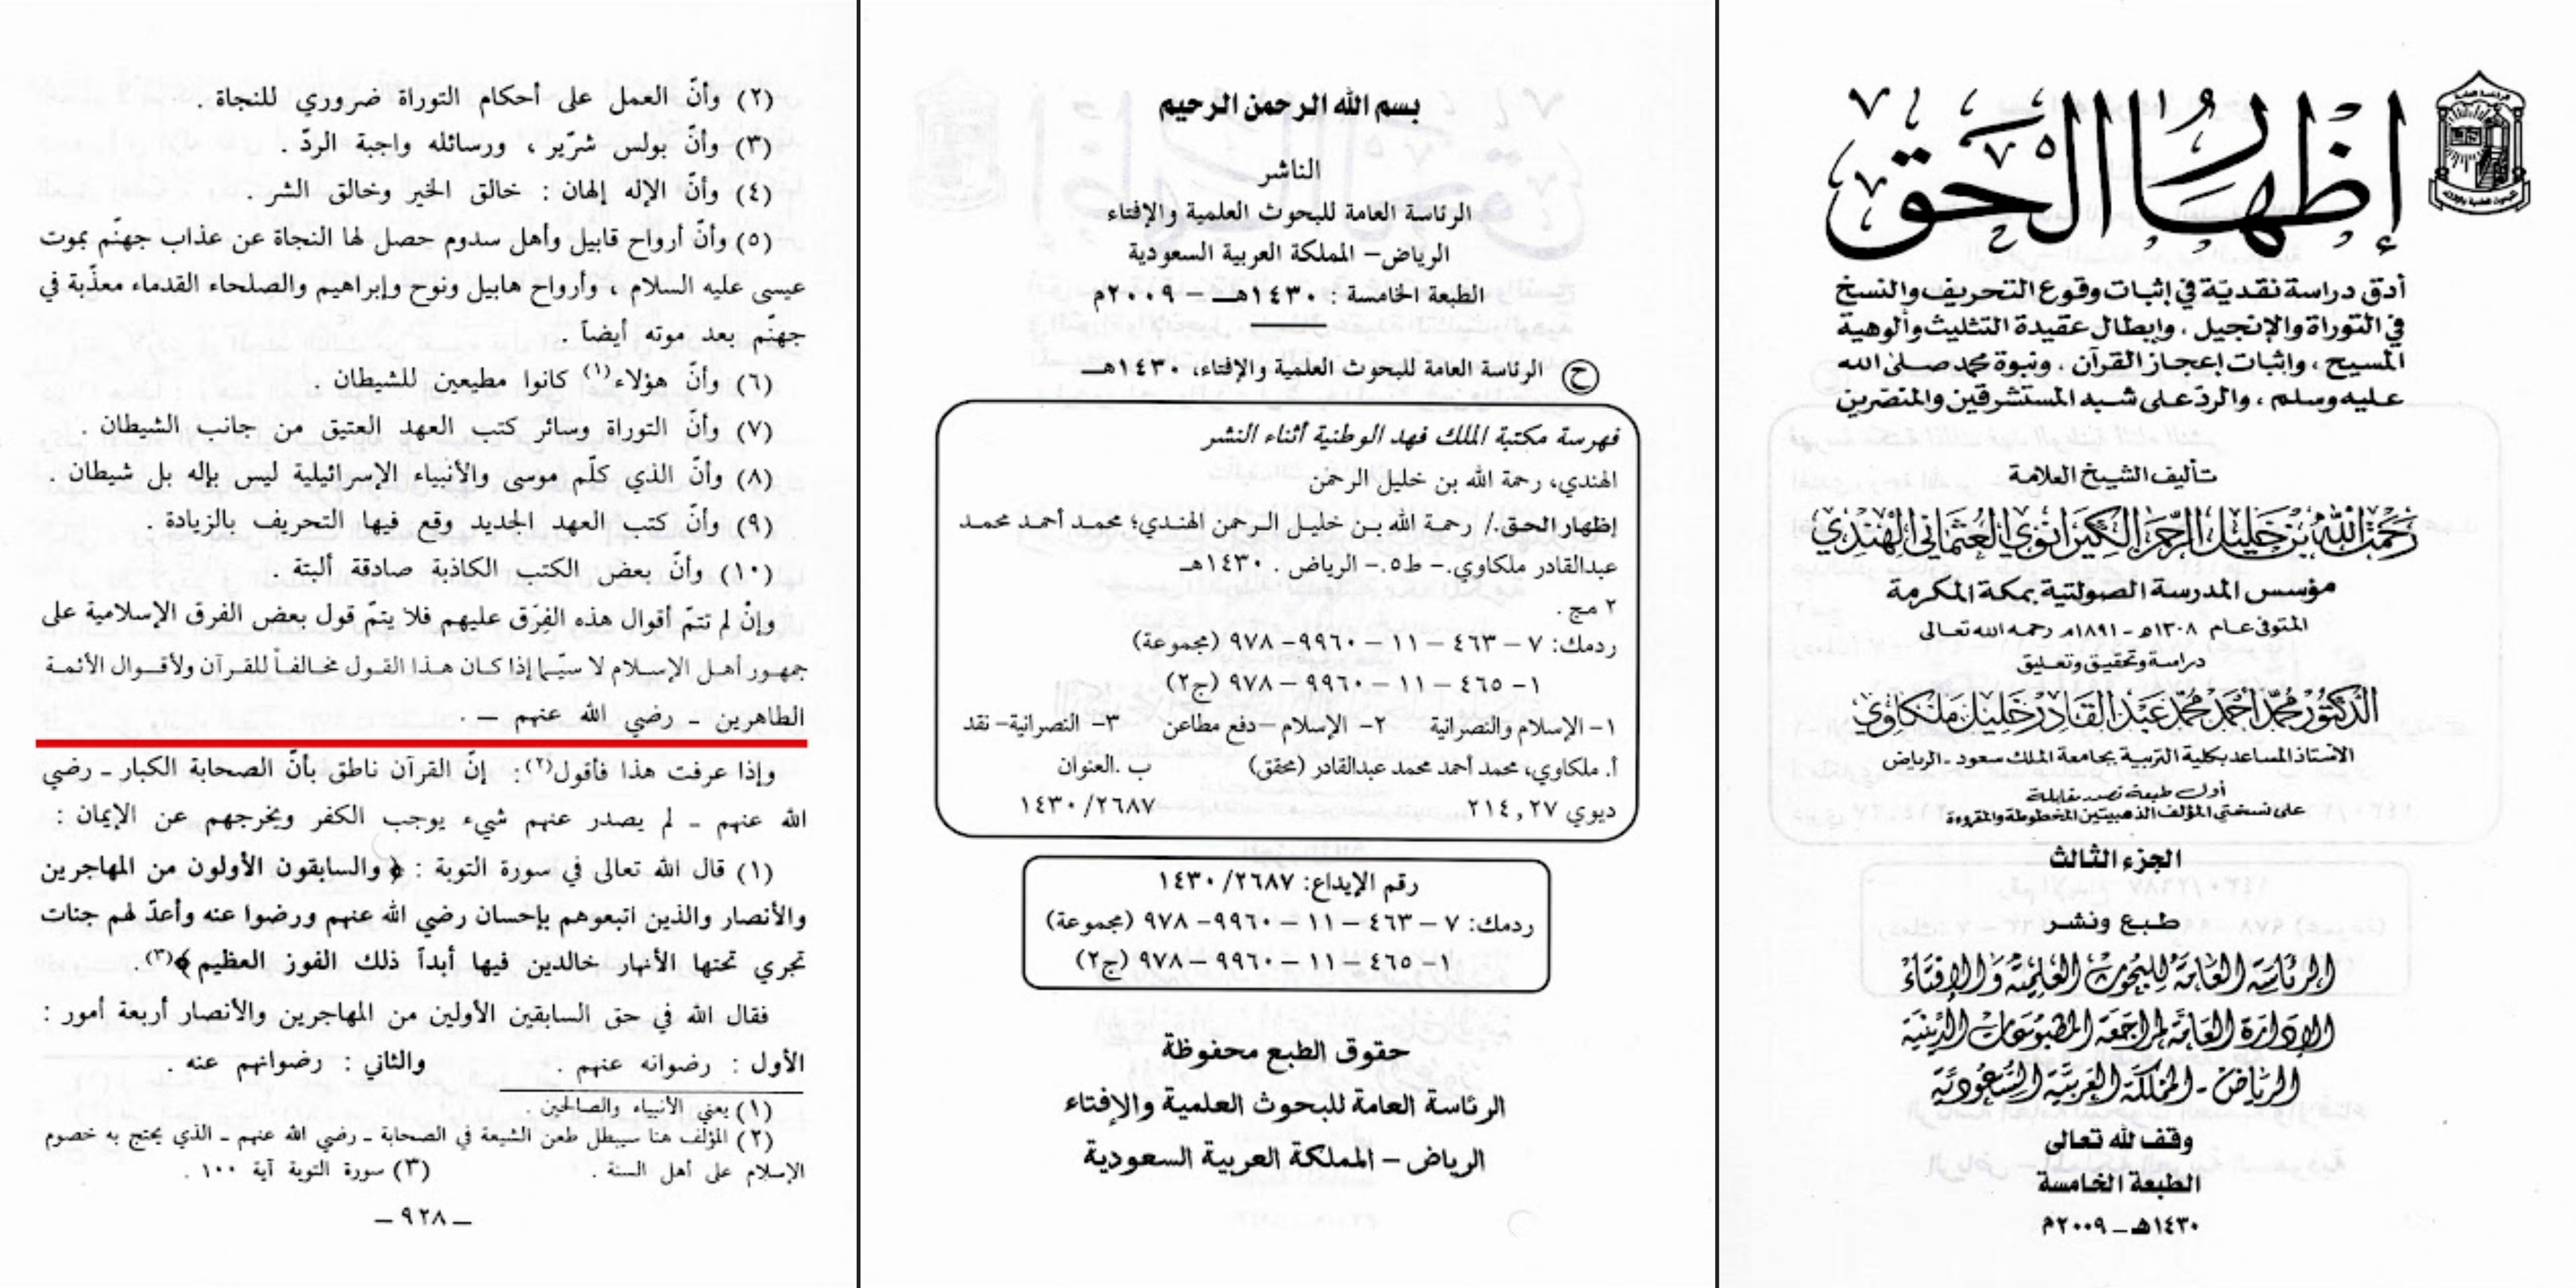 إظهار الحق
أدق دراسة نقدية في إثبات وقوع التحريف والنسخ
في التوراة والإنجيل ، وإبطال عقيدة التثليث وألوهية
المسيح ، وإثبات إعجاز القرآن ، ونبوة محمد صلى الله
عليه وسلم ، والرد على شبه المستشرقين والمنصرين
تأليف الشيخ العلامة
رحمت الله بن خليل الرحمن الكيرانوي العثماني الهندي
مؤسس المدرسة الصولتية بمكة المكرمة
المتوفى عام ١٣٠٨هـ - ١٨٩١م رحمه الله تعالى
دراسة وتحقيق وتعليق
الدكتور محمد أحمد محمد عبد القادر خليل ملكاوي
الأستاذ المساعد بكلية التربية بجامعة الملك سعود - الرياض
أول طبعة تصدر مقابلة
على نسختي المؤلف الذهبيتين المخطوطة والمقروءة
الجزء الثالث
طبع ونشر
الرئاسة العامة للبحوث العلمية والإفتاء
الإدارة العامة لمراجعة المطبوعات الدينية
الرياض - المملكة العربية السعودية
وقف لله تعالى
الطبعة الخامسة
١٤٣٠هـ – ٢٠٠٩م
بسم الله الرحمن الرحيم
الناشر
الرئاسة العامة للبحوث العلمية والإفتاء
الرياض– المملكة العربية السعودية
الطبعة الخامسة : ١٤٣٠هـــ – ٢٠٠٩م
ح الرئاسة العامة للبحوث العلمية والإفتاء، ١٤٣٠هـــ
فهرسة مكتبة الملك فهد الوطنية أثناء النشر
الهندي، رحمة الله بن خليل الرحمن
إظهار الحق./ رحمة الله بن خليل الرحمن الهندي؛ محمد أحمد محمد
عبدالقادر ملكاوي.- ط٥.- الرياض . ١٤٣٠هـ
٢ مج .
ردمك: ٧ – ٤٦٣ – ١١ – ٩٩٦٠ – ٩٧٨ (مجموعة)
١- ٤٦٥ – ١١ – ٩٩٦٠ – ٩٧٨ (ج٢)
١- الإسلام والنصرانية ٢- الإسلام –دفع مطاعن ٣- النصرانية- نقد
أ. ملكاوي، محمد أحمد محمد عبدالقادر (محقق) ب .العنوان
ديوي ٢١٤,٢٧ ١٤٣٠/٢٦٨٧
رقم الإيداع: ١٤٣٠/٢٦٨٧
ردمك: ٧ – ٤٦٣ – ١١ – ٩٩٦٠ – ٩٧٨ (مجموعة)
١- ٤٦٥ – ١١ – ٩٩٦٠ – ٩٧٨ (ج٢)
حقوق الطبع محفوظة
الرئاسة العامة للبحوث العلمية والإفتاء
الرياض – المملكة العربية السعودية
(٢) وأنّ العمل على أحكام التوراة ضروري للنجاة .
(٣) وأنّ بولس شرّير ، ورسائله واجبة الردّ .
(٤) وأنّ الإله إلهان : خالق الخير وخالق الشر .
(٥) وأنّ أرواح قابيل وأهل سدوم حصل لها النجاة عن عذاب جهنّم بموت
عيسى عليه السلام ، وأرواح هابيل ونوح وإبراهيم والصلحاء القدماء معذّبة في
جهنّم بعد موته أيضاً .
(٦) وأنّ هؤلاء(١) كانوا مطيعين للشيطان .
(٧) وأنّ التوراة وسائر كتب العهد العتيق من جانب الشيطان .
(٨) وأنّ الذي كلّم موسى والأنبياء الإسرائيلية ليس بإله بل شيطان .
(٩) وأنّ كتب العهد الجديد وقع فيها التحريف بالزيادة .
(١٠) وأنّ بعض الكتب الكاذبة صادقة ألبتة .
وإنْ لم تتمّ أقوال هذه الفِرَق عليهم فلا يتمّ قول بعض الفرق الإسلامية على
جمهور أهل الإسلام لا سيّما إذا كان هذا القول مخالفاً للقرآن ولأقوال الأئمة
الطاهرين ـ رضي الله عنهم ـ .
وإذا عرفت هذا فأقول(٢) : إنّ القرآن ناطق بأنّ الصحابة الكبار ـ رضي
الله عنهم ـ لم يصدر عنهم شيء يوجب الكفر ويخرجهم عن الإيمان :
(١) قال الله تعالى في سورة التوبة : ﴿ والسابقون الأولون من المهاجرين
والأنصار والذين اتبعوهم بإحسان رضي الله عنهم ورضوا عنه وأعدّ لهم جنات
تجري تحتها الأنهار خالدين فيها أبداً ذلك الفوز العظيم ﴾(٣) .
فقال الله في حق السابقين الأولين من المهاجرين والأنصار أربعة أمور :
الأول : رضوانه عنهم . والثاني : رضوانهم عنه .
(١) يعني الأنبياء والصالحين .
(٢) المؤلف هنا سيبطل طعن الشيعة في الصحابة ـ رضي الله عنهم ـ الذي يحتج به خصوم
الإسلام على أهل السنة . (٣) سورة التوبة آية ١٠٠ .
– ٩٢٨ –